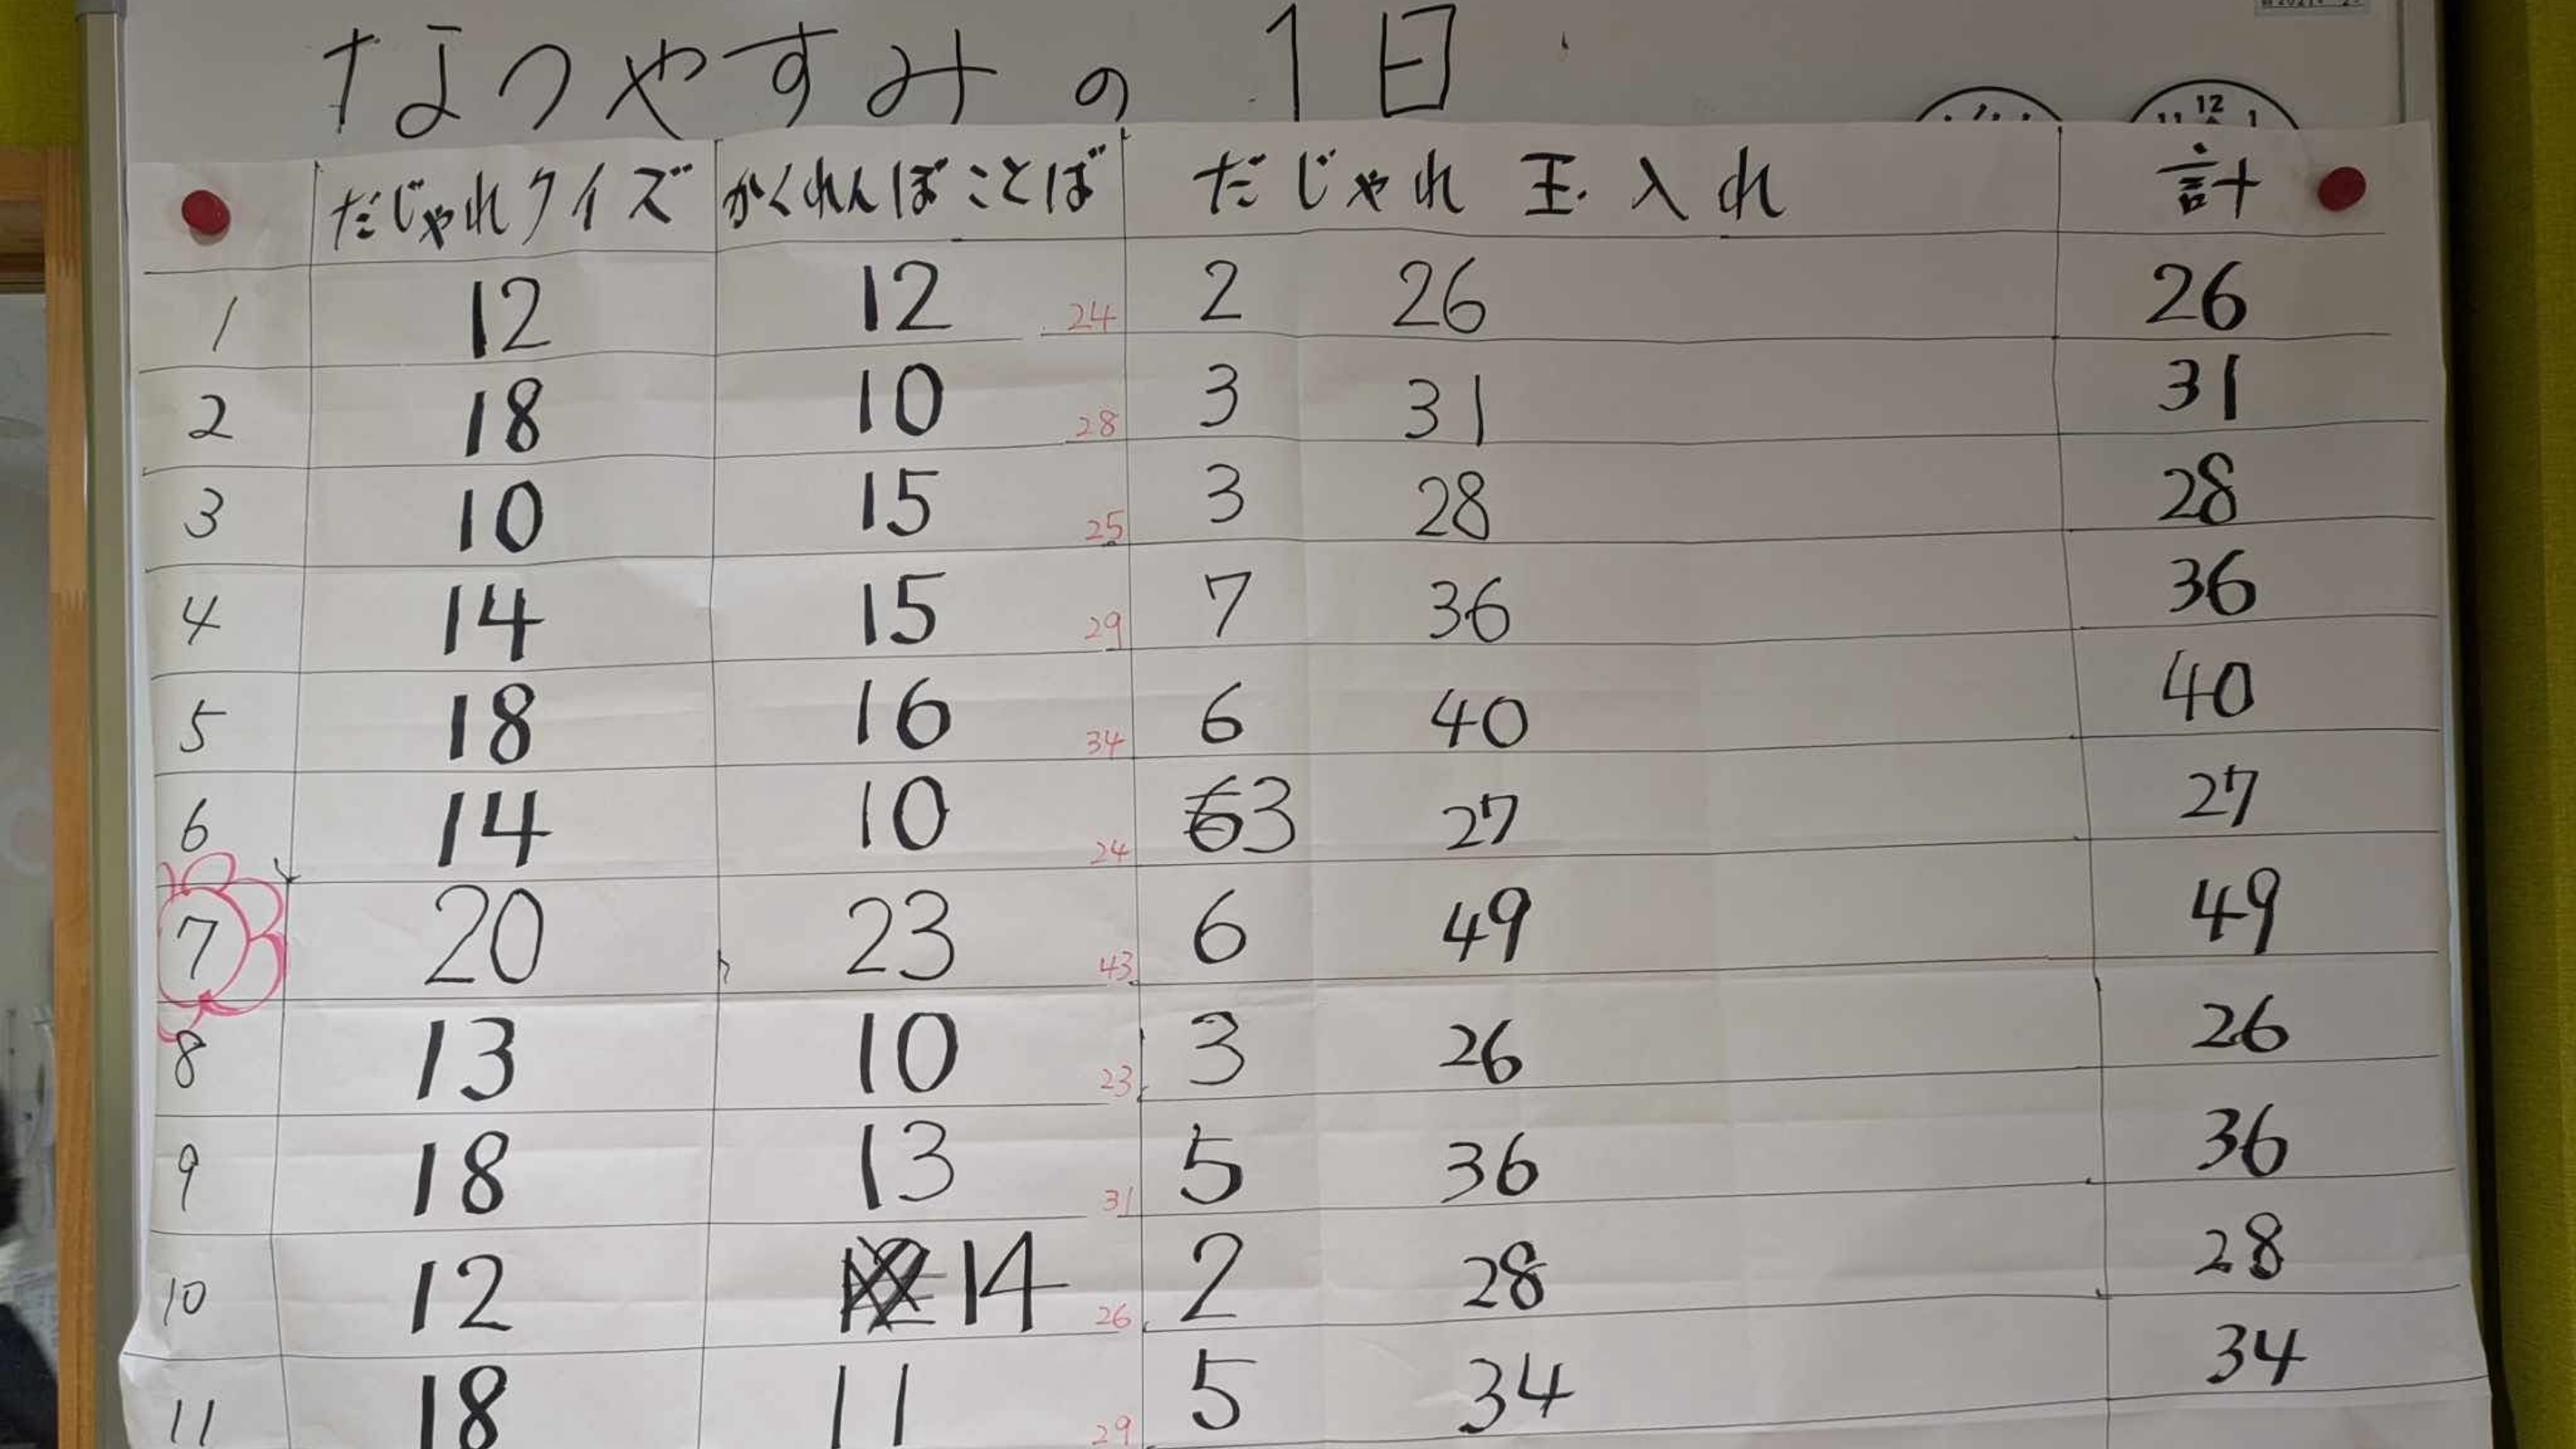 なつやすみの 1日
12
11 1
だじゃれクイズ かくれんぼことば だじゃれ玉入れ 計
1 12 12 24 2 26 26
2 18 10 28 3 31 31
3 10 15 25 3 28 28
4 14 15 29 7 36 36
5 18 16 34 6 40 40
6 14 10 24 63 27 27
7 20 23 43 6 49 49
8 13 10 23 3 26 26
9 18 13 31 5 36 36
10 12 12 14 26 2 28 28
11 18 11 29 5 34 34